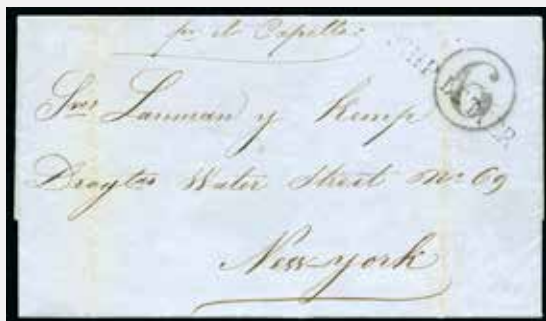 pr el Capella:
SHIP LETTER
6
Sres Lanman y Kemp
Drogtas Water Street No 69
New-york